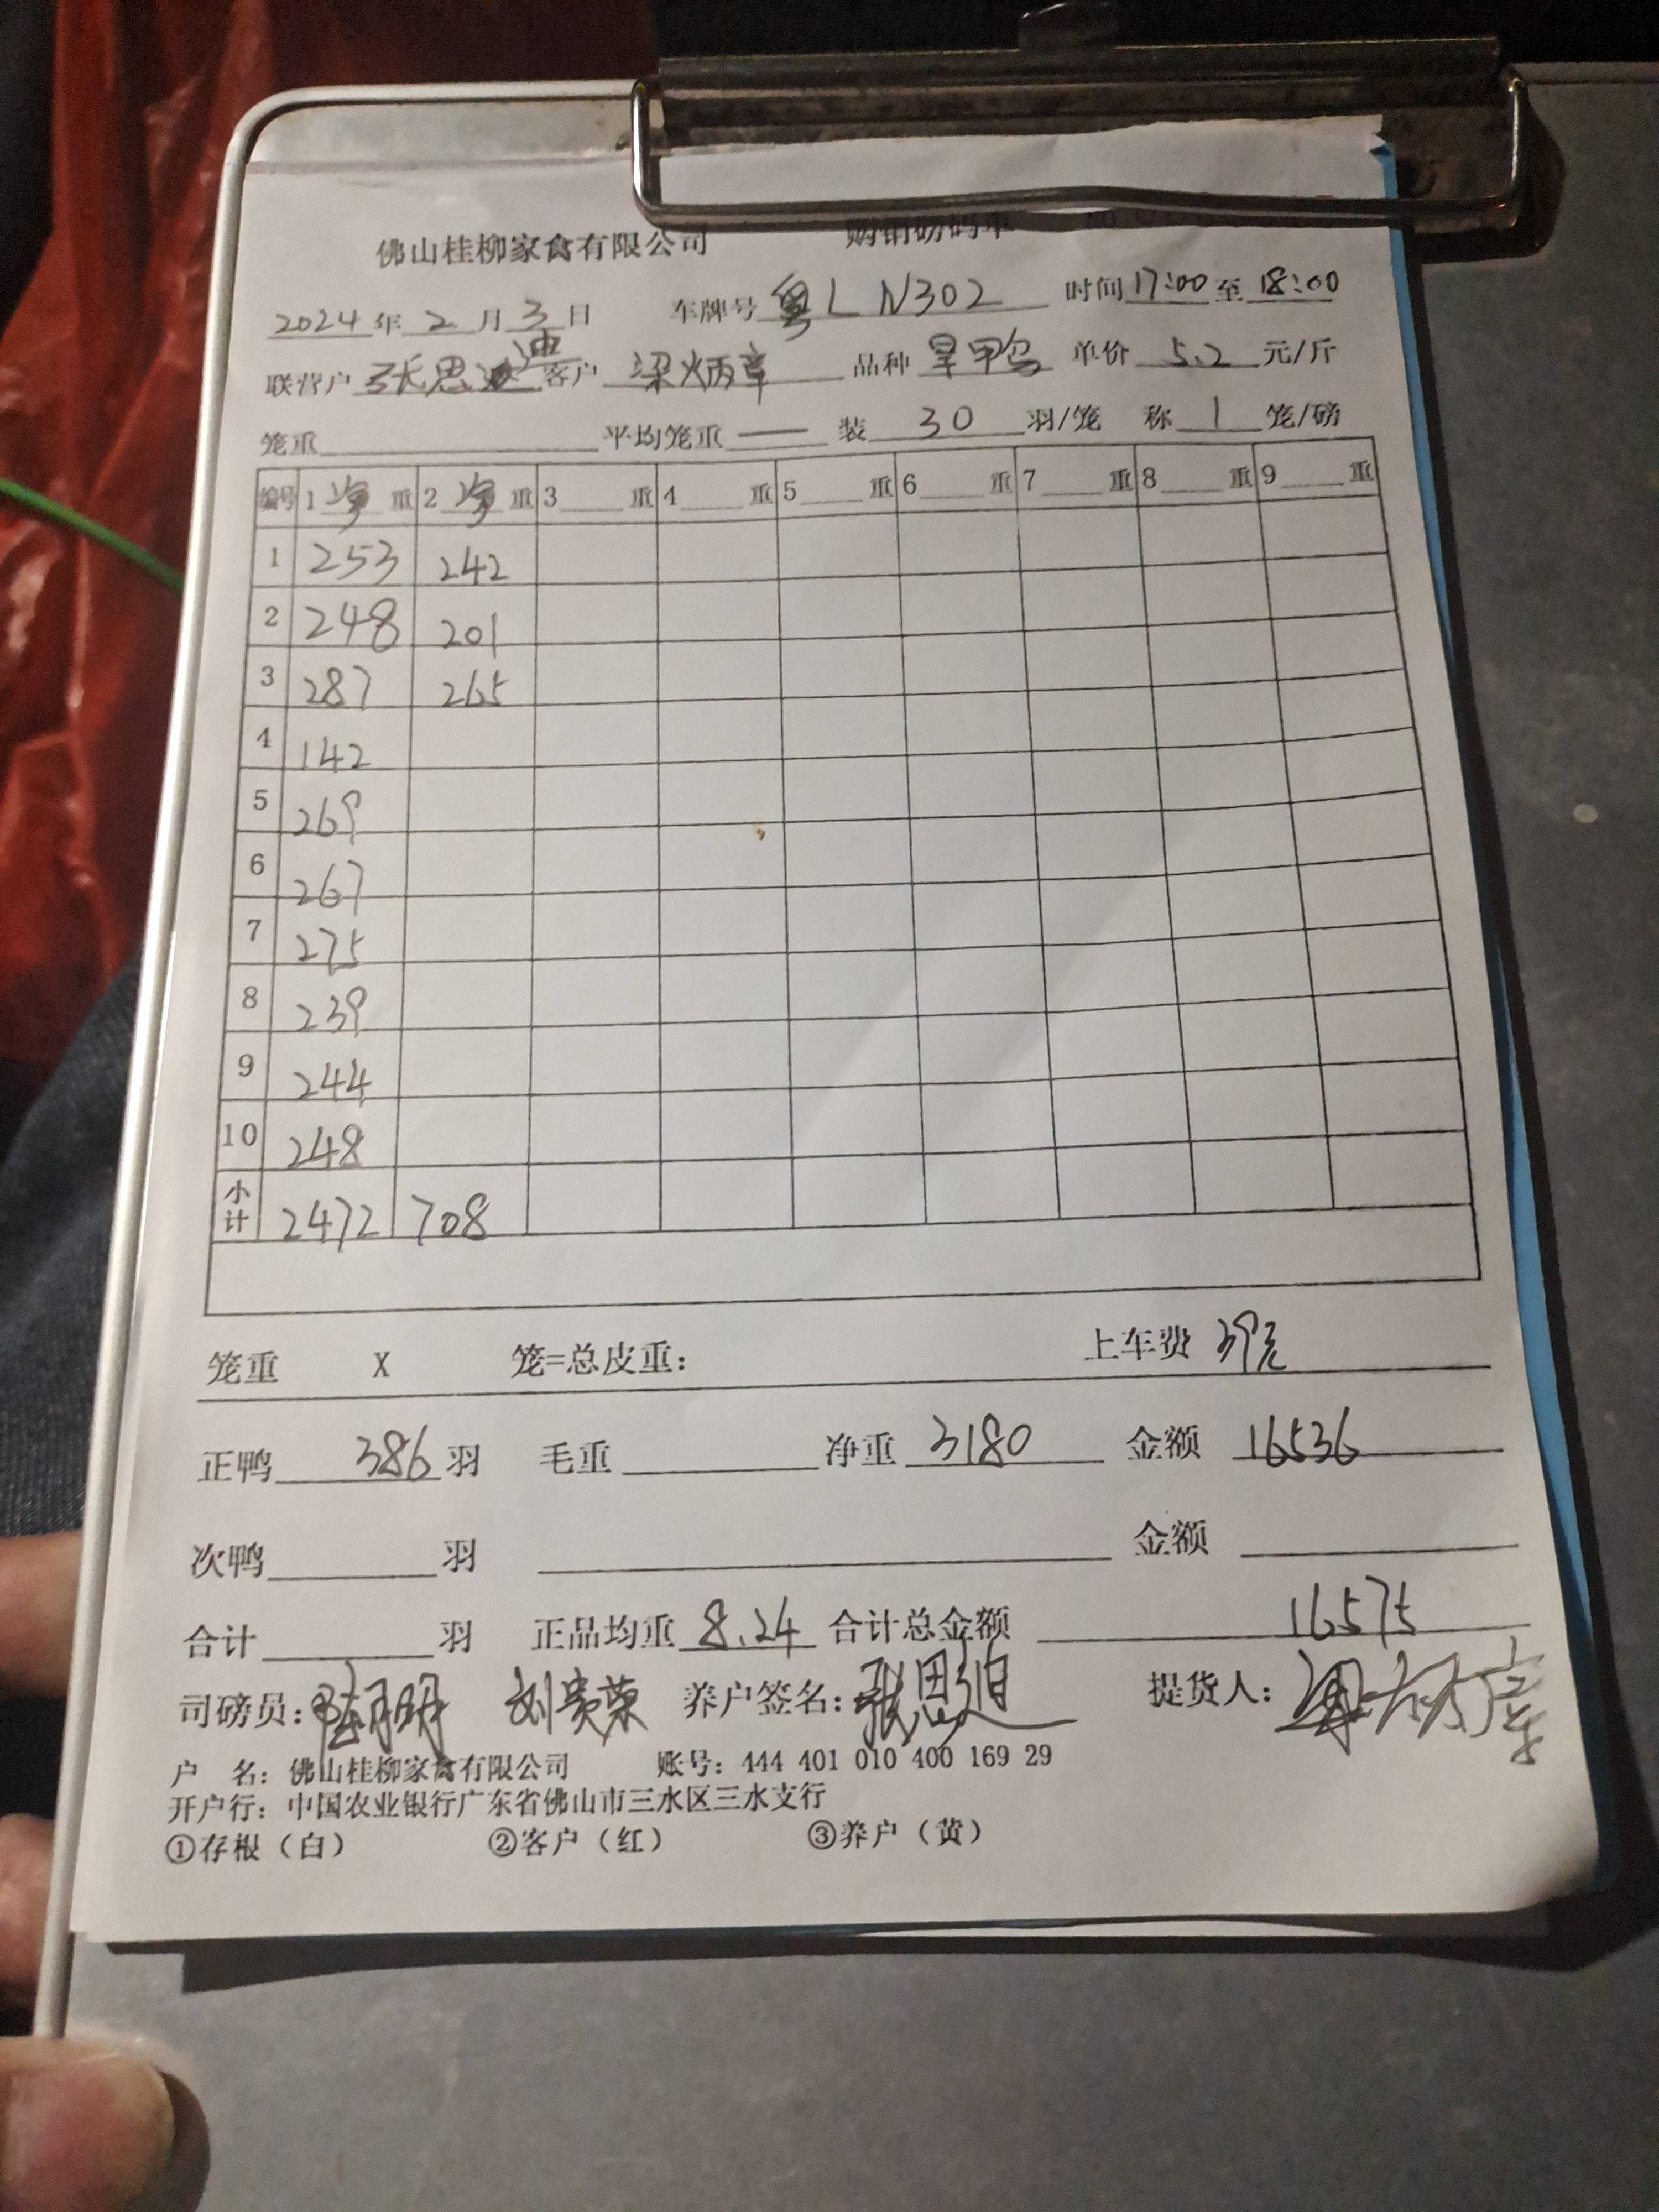 佛山桂柳家禽有限公司 购销磅码单
2024年2月3日 车牌号 粤L N302 时间17:00至18:00
联营户 张思迪 客户 梁炳章 品种 旱鸭 单价 5.2 元/斤
笼重 平均笼重 — 装 30 羽/笼 称 1 笼/磅
编号 1 净 重 2 净 重 3 重 4 重 5 重 6 重 7 重 8 重 9 重
1 253 242
2 248 201
3 287 265
4 142
5 269
6 267
7 275
8 239
9 244
10 248
小计 2472 708
笼重 X 笼=总皮重: 上车费 39元
正鸭 386 羽 毛重 净重 3180 金额 16536
次鸭 羽 金额
合计 羽 正品均重 8.24 合计总金额 16575
司磅员: 刘贵荣 养户签名: 张思迪 提货人: 梁炳章
户 名: 佛山桂柳家禽有限公司 账号: 444 401 010 400 169 29
开户行: 中国农业银行广东省佛山市三水区三水支行
①存根（白） ②客户（红） ③养户（黄）